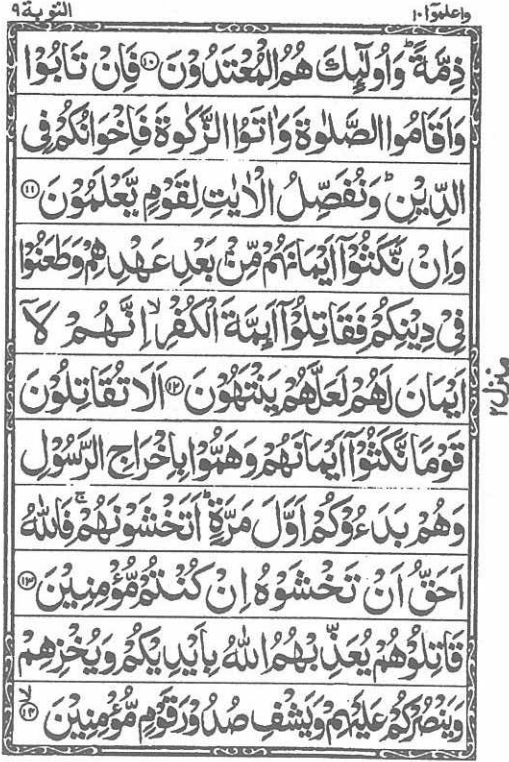 واعلموا ١٠
التوبة ٩
ذِمَّةً ؕ وَاُولٰٓئِكَ هُمُ الْمُعْتَدُوْنَ ۝۱۰ فَاِنْ تَابُوْا
وَاَقَامُوا الصَّلٰوةَ وَاٰتَوُا الزَّكٰوةَ فَاِخْوَانُكُمْ فِي
الدِّيْنِ ؕ وَنُفَصِّلُ الْاٰيٰتِ لِقَوْمٍ يَّعْلَمُوْنَ ۝۱۱
وَاِنْ نَّكَثُوْۤا اَيْمَانَهُمْ مِّنْۢ بَعْدِ عَهْدِهِمْ وَطَعَنُوْا
فِيْ دِيْنِكُمْ فَقَاتِلُوْۤا اَىِٕمَّةَ الْكُفْرِ ۙ اِنَّهُمْ لَاۤ
اَيْمَانَ لَهُمْ لَعَلَّهُمْ يَنْتَهُوْنَ ۝۱۲ اَلَا تُقَاتِلُوْنَ
قَوْمًا نَّكَثُوْۤا اَيْمَانَهُمْ وَهَمُّوْا بِاِخْرَاجِ الرَّسُوْلِ
وَهُمْ بَدَءُوْكُمْ اَوَّلَ مَرَّةٍ ؕ اَتَخْشَوْنَهُمْ ۚ فَاللّٰهُ
اَحَقُّ اَنْ تَخْشَوْهُ اِنْ كُنْتُمْ مُّؤْمِنِيْنَ ۝۱۳
قَاتِلُوْهُمْ يُعَذِّبْهُمُ اللّٰهُ بِاَيْدِيْكُمْ وَيُخْزِهِمْ
وَيَنْصُرْكُمْ عَلَيْهِمْ وَيَشْفِ صُدُوْرَ قَوْمٍ مُّؤْمِنِيْنَ ۝۱۴ۙ
منزل ٢